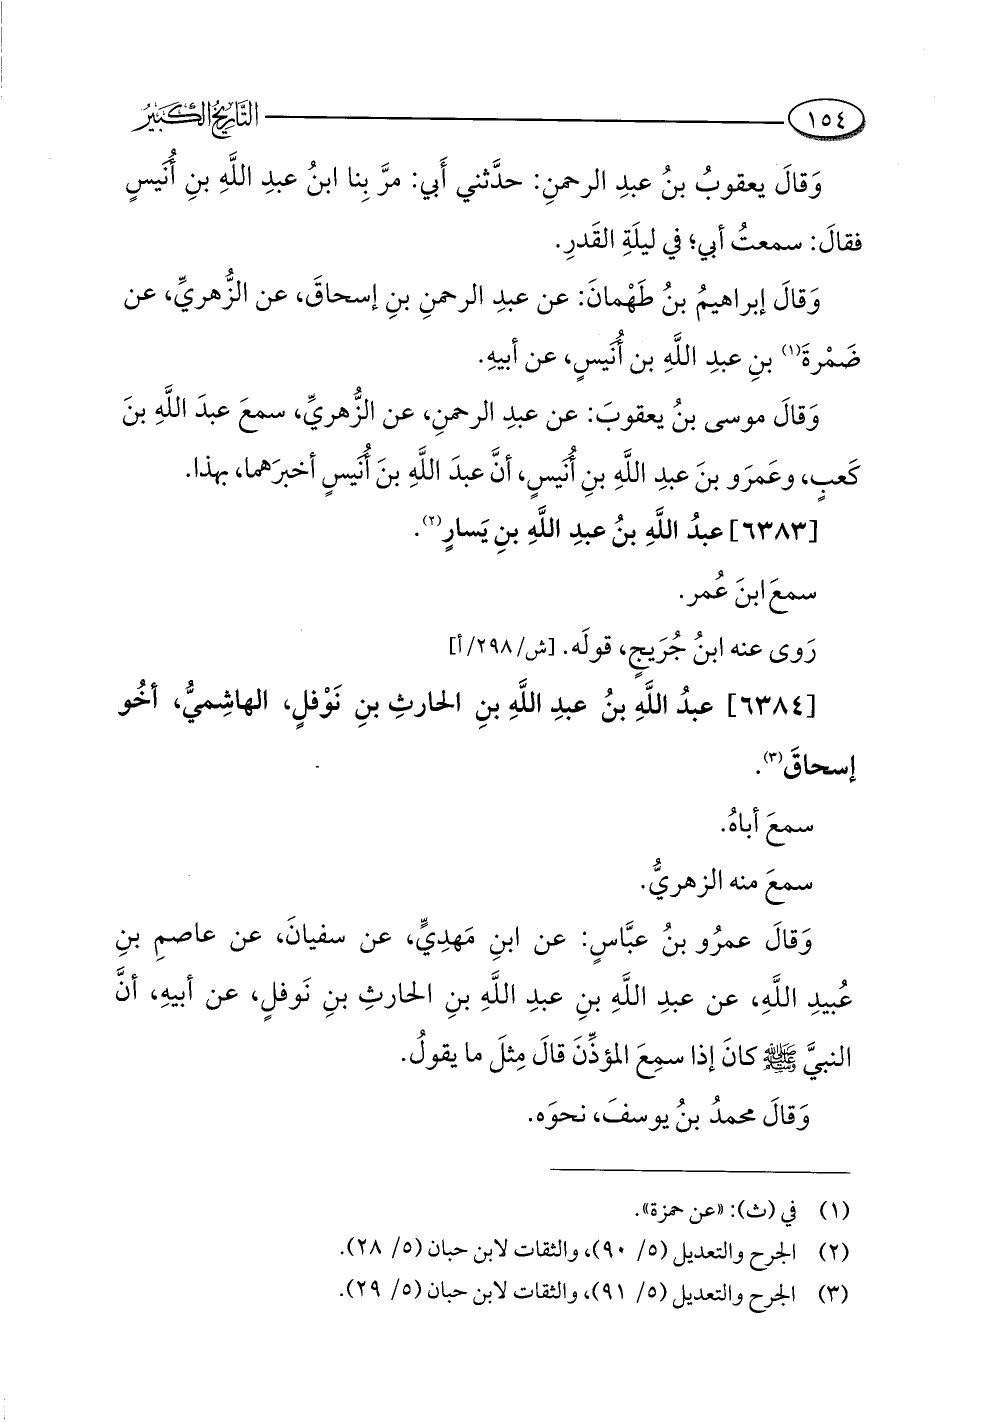 ١٥٤ التَّارِيخُ الكَبِيرُ
وَقالَ يعقوبُ بنُ عبدِ الرحمنِ: حدَّثني أَبي: مرَّ بِنا ابنُ عبدِ اللَّهِ بنِ أُنَيسٍ
فقالَ: سمعتُ أبي؛ في ليلَةِ القَدرِ.
وَقالَ إبراهيمُ بنُ طَهْمانَ: عن عبدِ الرحمنِ بنِ إسحاقَ، عن الزُّهريِّ، عن
ضَمْرةَ(١) بنِ عبدِ اللَّهِ بن أُنَيسٍ، عن أبيهِ.
وَقالَ موسى بنُ يعقوبَ: عن عبدِ الرحمنِ، عن الزُّهريِّ، سمعَ عبدَ اللَّهِ بنَ
كَعبٍ، وعَمرَو بنَ عبدِ اللَّهِ بنِ أُنَيسٍ، أنَّ عبدَ اللَّهِ بنَ أُنَيسٍ أخبرَهما، بهذا.
[٦٣٨٣] عبدُ اللَّهِ بنُ عبدِ اللَّهِ بنِ يَسارٍ(٢).
سمعَ ابنَ عُمر.
رَوى عنه ابنُ جُرَيجٍ، قولَه. [ش/٢٩٨/أ]
[٦٣٨٤] عبدُ اللَّهِ بنُ عبدِ اللَّهِ بنِ الحارثِ بنِ نَوْفلٍ، الهاشِميُّ، أخُو
إسحاقَ(٣).
سمعَ أباهُ.
سمعَ منه الزهريُّ.
وَقالَ عمرُو بنُ عبَّاسٍ: عن ابنِ مَهديٍّ، عن سفيانَ، عن عاصمِ بنِ
عُبيدِ اللَّهِ، عن عبدِ اللَّهِ بنِ عبدِ اللَّهِ بنِ الحارثِ بنِ نَوفلٍ، عن أبيهِ، أنَّ
النبيَّ ﷺ كانَ إذا سمِعَ المؤذِّنَ قالَ مِثلَ ما يقولُ.
وَقالَ محمدُ بنُ يوسفَ، نحوَه.
(١) في (ث): «عن حمزة».
(٢) الجرح والتعديل (٥/ ٩٠)، والثقات لابن حبان (٥/ ٢٨).
(٣) الجرح والتعديل (٥/ ٩١)، والثقات لابن حبان (٥/ ٢٩).